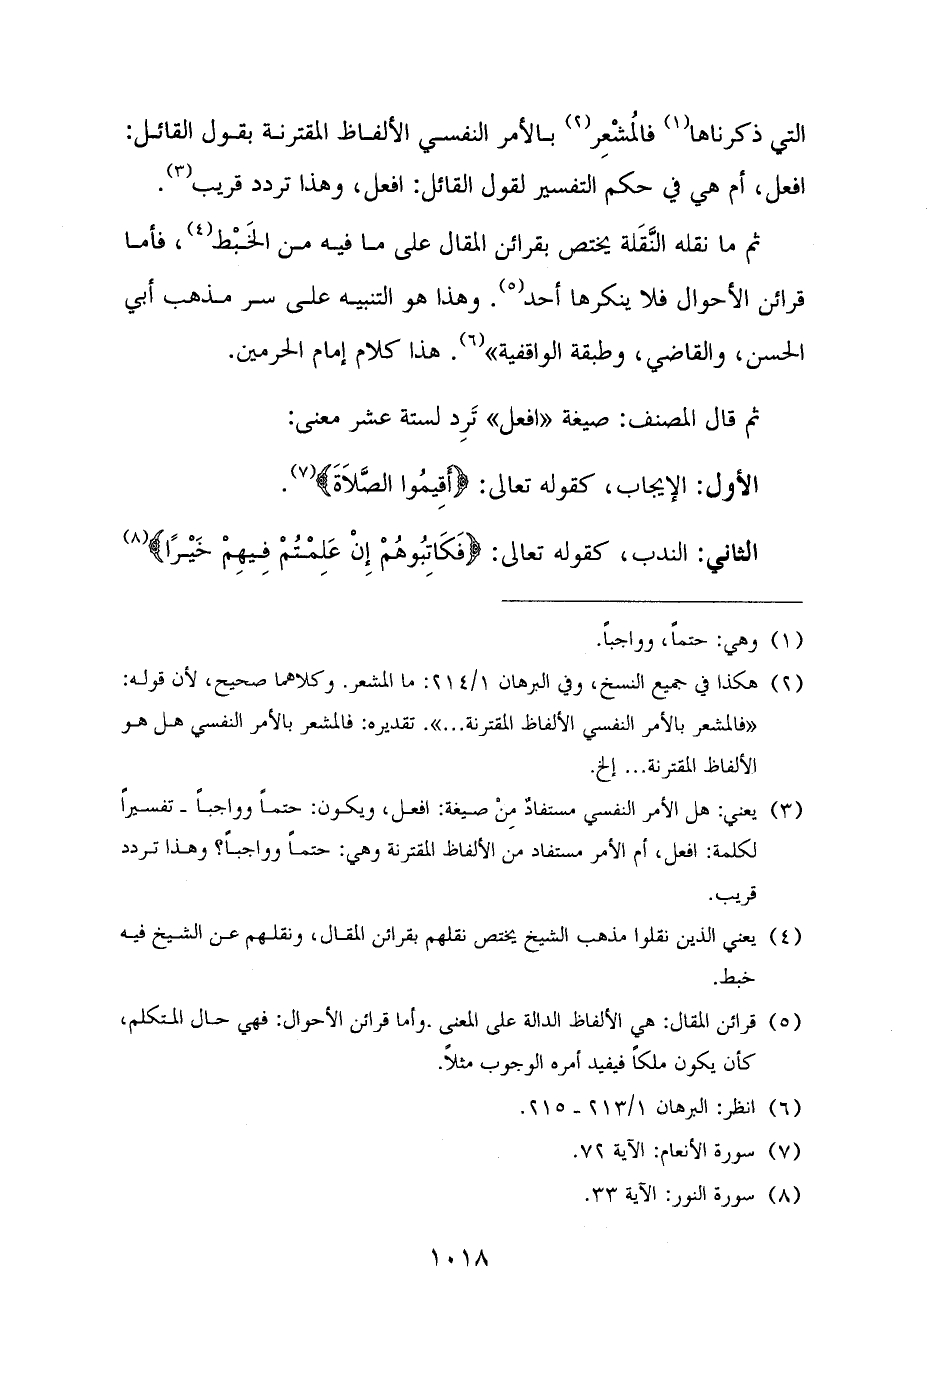 التي ذكرناها(١) فالمُشْعِر(٢) بالأمر النفسي الألفاظ المقترنة بقول القائل:
افعل، أم هي في حكم التفسير لقول القائل: افعل، وهذا تردد قريب(٣).
ثم ما نقله النَّقَلة يختص بقرائن المقال على ما فيه من الخَبْط(٤)، فأما
قرائن الأحوال فلا ينكرها أحد(٥). وهذا هو التنبيه على سر مذهب أبي
الحسن، والقاضي، وطبقة الواقفية»(٦). هذا كلام إمام الحرمين.
ثم قال المصنف: صيغة «افعل» تَرِد لستة عشر معنى:
الأول: الإيجاب، كقوله تعالى: ﴿أَقِيمُوا الصَّلاَةَ﴾(٧).
الثاني: الندب، كقوله تعالى: ﴿فَكَاتِبُوهُمْ إِنْ عَلِمْتُمْ فِيهِمْ خَيْرًا﴾(٨)
(١) وهي: حتماً، وواجباً.
(٢) هكذا في جميع النسخ، وفي البرهان ٢١٤/١: ما المشعر. وكلاهما صحيح، لأن قوله:
«فالمشعر بالأمر النفسي الألفاظ المقترنة...». تقديره: فالمشعر بالأمر النفسي هل هو
الألفاظ المقترنة... إلخ.
(٣) يعني: هل الأمر النفسي مستفادٌ مِنْ صيغة: افعل، ويكون: حتماً وواجباً ـ تفسيراً
لكلمة: افعل، أم الأمر مستفاد من الألفاظ المقترنة وهي: حتماً وواجباً؟ وهذا تردد
قريب.
(٤) يعني الذين نقلوا مذهب الشيخ يختص نقلهم بقرائن المقال، ونقلهم عن الشيخ فيه
خبط.
(٥) قرائن المقال: هي الألفاظ الدالة على المعنى .وأما قرائن الأحوال: فهي حال المتكلم،
كأن يكون ملكاً فيفيد أمره الوجوب مثلاً.
(٦) انظر: البرهان ٢١٣/١ ـ ٢١٥.
(٧) سورة الأنعام: الآية ٧٢.
(٨) سورة النور: الآية ٣٣.
١٠١٨